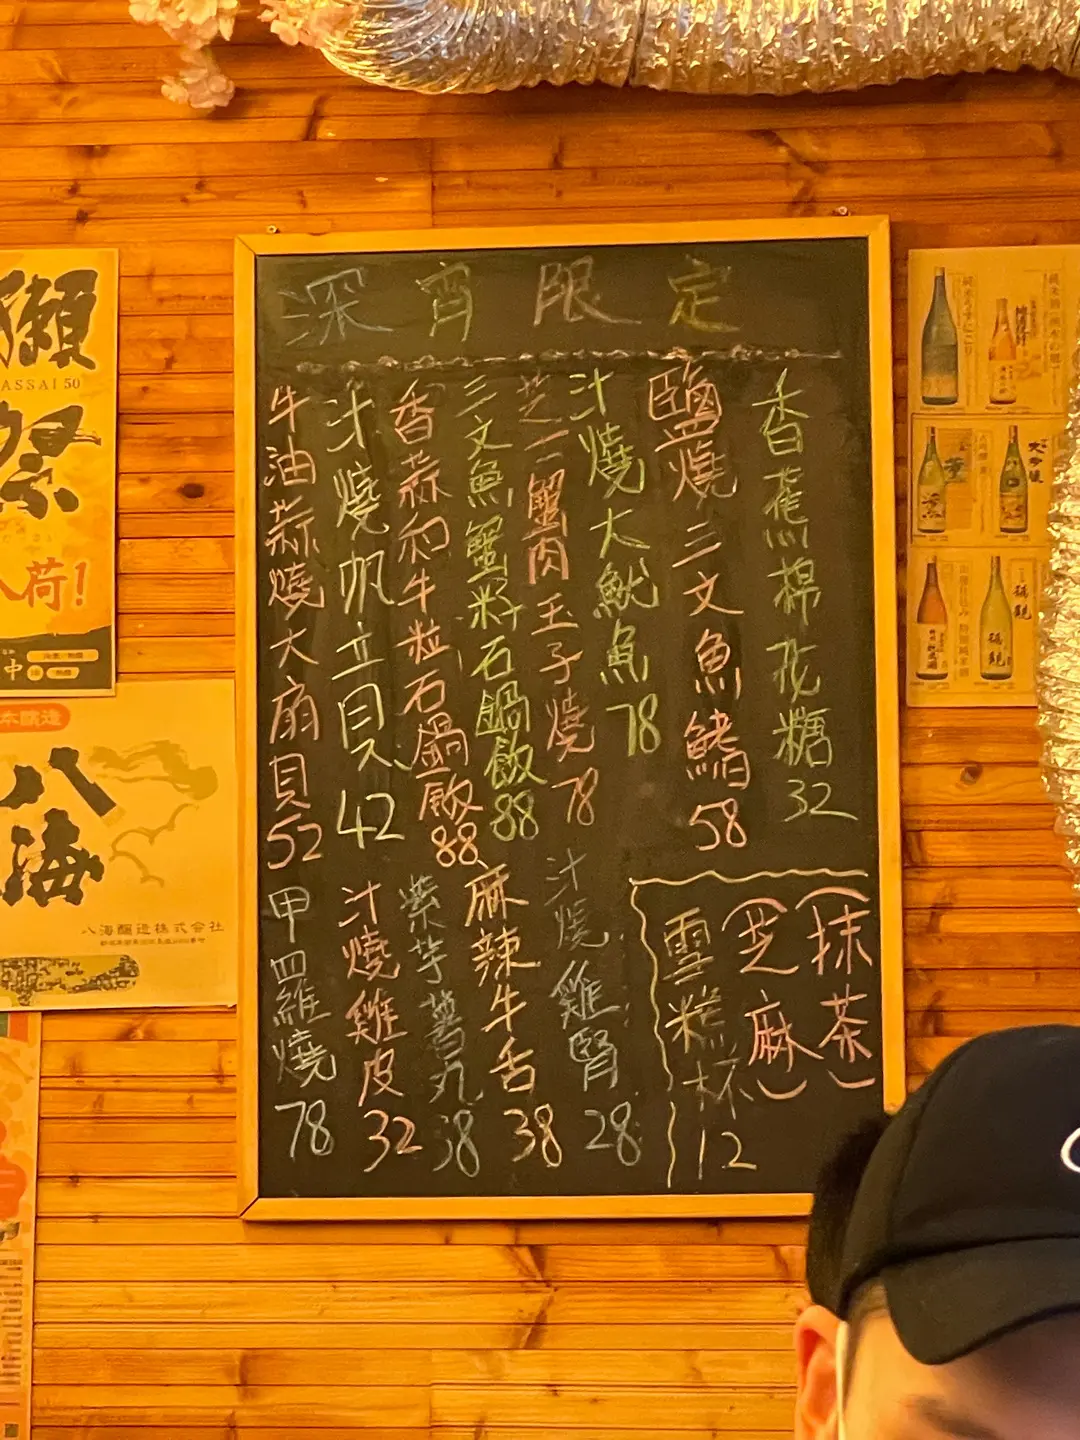 深宵限定
香蕉棉花糖32
鹽燒三文魚鰭58
汁燒大魷魚78
芝士蟹肉玉子燒78
三文魚蟹籽石鍋飯88
香蒜和牛粒石鍋飯88
汁燒帆立貝42
牛油蒜燒大扇貝52
(抹茶)
(芝麻)
雪糕杯12
汁燒雞腎28
麻辣牛舌38
紫芋薯丸38
汁燒雞皮32
甲羅燒78
獺祭
ASSAI 50
入荷!
中
本醸造
八海
八海醸造株式会社